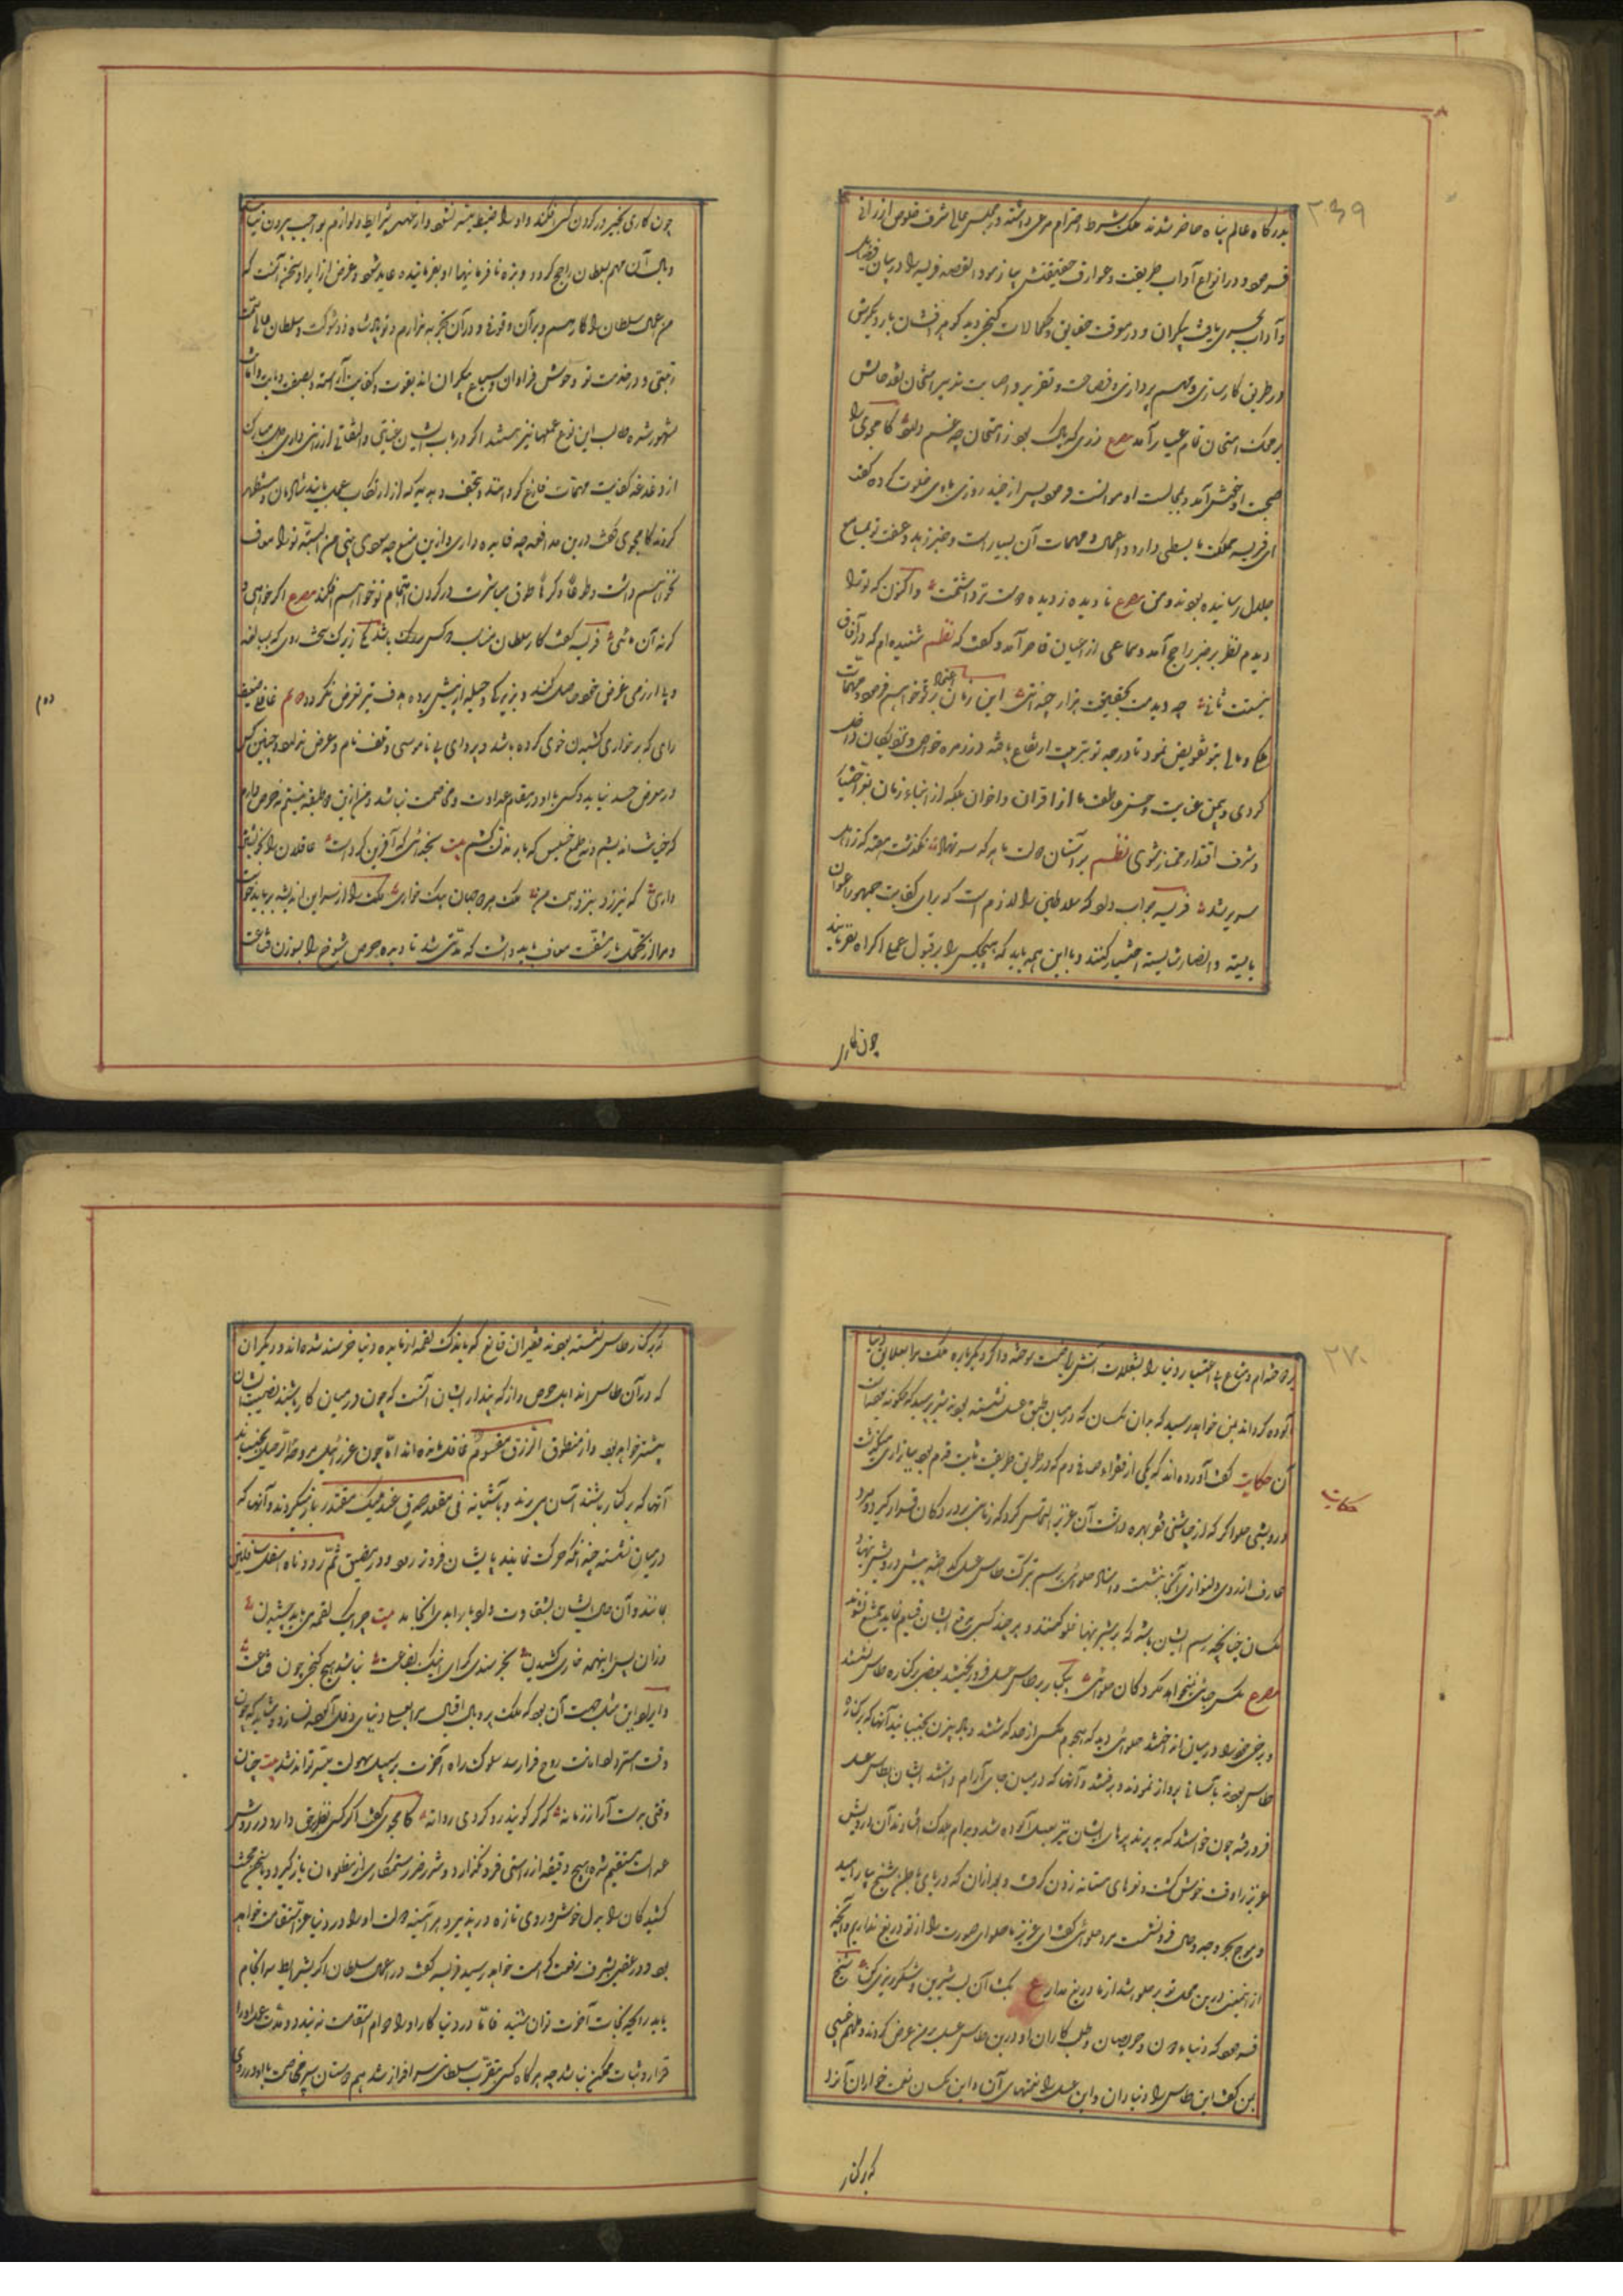 ۲۳۹
بدرگاه عالم پناه حاضر شدند ملک بشرط احترام مرعی داشته در مجلس عالی شرف جلوس ارزانی
فرمود و در انواع آداب طریقت و عوارف حقیقتش بیازمود القصه فریسه را در بیان فضایل
و آداب بحری یافت بیکران و در معرفت حقایق و کمالات گنجی دید گوهرافشان بار دیگرش
در طریق کارسازی و مهم پردازی و فصاحت و تقریر و اصابت تدبیر امتحان نقد حالش
بر محک امتحان تمام عیار آمد مصرع زری که پاک بود ز امتحان چه غم دارد کامجوی را
صحبت او خوش آمد و بمجالست او موانست فرمود پس از چند روزی با وی خلوت کرده گفت
ای فریسه مملکت ما بسطی دارد و اعمال و مهمات آن بسیار است و خبر زهد و عفت تو بمسامع
جلال رسانیده بودند و من مصرع نادیده ز دیده دوست تر داشتمت و اکنون که ترا
دیدم نظر بر خبر راجح آمد و سماعی از عیان قاصر آمد و گفت که نظم شنیده‌ام که در آفاق
نیست ثانی چه دیدمت بحقیقت هزار چندانی این زمان بر تو اعتماد خواهم فرمود و مهمات
ملکی و مالی بتو تفویض نمود تا درجه تو بتربیت ارتفاع یافته در زمره خواص و نزدیکان داخل
گردی و بیمن عنایت و حسن عاطفت ما از اقران و اخوان بلکه از ابناء زمان بقوت اختیار
و شرف اقتدار ممتاز شوی نظم بر آستان دولت ما هر که سر نهاد نگذشت هفته که ز اهل
سریر شد فریسه جواب داد که سلاطین را لازم است که برای کفایت جمهور اعوان
بایسته و انصار شایسته اختیار کنند و با این همه باید که هیچکس را بر قبول عمل اکراه نفرمایند
چون کاری
چون کاری بجبر در گردن کسی فکنند و او را ضبط میسر نشود و از عهده شرایط و لوازم بواجب بیرون نیاید
وبال آن مهم بسلطان راجع گردد و بزه نافرمانیها او بفرماینده عاید شود و غرض از ایراد سخن آنست که
من عمل سلطان را کارهم و بر آن وقوفی و در آن تجربه ندارم و تو پادشاه ذوشوکت و سلطان عالی
رتبتی و در خدمت تو وحوش فراوان و سباع بیکران اند بقوت و کفایت آراسته و بصفت دیانت و امانت
مشهور شده و طالب این نوع عملها نیز هستند اگر در باب ایشان عنایتی و التفاتی ارزانی داری دل مبارک
از دغدغه کفایت مهمات فارغ گردانند و بتحف و هدیه که از ارتکاب عمل یابند شادمان و مستظهر
گردند کامجوی گفت درین مدافعه چه فایده داری و ازین منع چه سود بینی من البته ترا معاف
نخواهم داشت و طوعا و کرها طوق مباشرت در گردن اهتمام تو خواهم افکند مصرع اگر خواهی و
گرنه آن مائی فریسه گفت کار سلطان مناسب دو کس باشد یکی زیرک سخت روی که بمبالغه
و پا از رمی غرض خود حاصل کند و بزیرکی و حیله از پیش برده هدف تیر تعرض نگردد دوم غافلی ضعیف
رای که بر خواری کشیدن خوی کرده باشد و پروای بی ناموسی وقف نام و عرض ندارد و چنین کس
در معرض حسد نیاید و کسی با او در مقام عداوت و مخاصمت نباشد و من ازین دو طبقه نیستم نه حرص دارم
که خیانت اندیشم و نه طمع خسیس که بار مذلت کشم بیت بخدائی که آفرین کرده است عاقلان را بخویشتن
داری که نیرزد بنزد همت من ملک هر دو جهان بیک خواری ملک را از سر این اندیشه برباید خاست
و مرا از تحمل بار مشقت معاف باید داشت که مدتی شد تا دیده حرص شوخ را بسوزن قناعت
۲۷۰
بردوخته‌ام و متاع بی اعتبار دنیا را بشعلات آتش ریاضت سوخته و اگر دیگرباره ملک مرا بعلایق دنیا
آلوده گرداند بمن خواهد رسید که بدان مگسان که در میان طبق عسل نشسته بودند شیر پرسید که چگونه بود
آن حکایت گفت آورده‌اند که یکی از فقراء صافی دم که در طریق طریقت ثابت قدم بود ببازاری میگذشت
حکایت
درویشی حلواگر که از چاشنی فقر بهره داشت آن عزیز التماس کرد که زمانی بر در دکان قرار گیرد مرد
عارف از روی دلنوازی آنجا بنشست و استاد حلوائی برسم تبرک طاسی عسل کرده پیش درویش بنهاد
مگسان چنانچه رسم ایشان باشد که بر شیرینیها غلو کنند و هر چند کسی بدفع ایشان قیام نماید ممتنع نشوند
مصرع مگس جائی نخواهد مگر دکان حلوائی بیکبار بر طاس عسل فرود ریختند بعضی بر کناره طاس نشستند
و برخی خود را در میان انداختند حلوائی دید که هجوم مگس از حد گذشت بادبیزن بجنبانید آنها که بر کناره
طاس بودند بآسانی پرواز نمودند و برفتند و آنها که در میان جای آرام داشتند ایشان بطاس عسل
فرو رفته چون خواستند که بپرند پرهای ایشان نیز بعسل آلوده شد و بدام هلاک افتادند آن درویش
عزیز را وقت خوش گشت و نعره‌های مستانه زدن گرفت و بعد از آن که دریای باطن شیخ بیارامید
و موج بحر وجد و حال فرو نشست مرد حلوائی گفت ای عزیز ما حلوای صورت را از تو دریغ نداریم و آنچه
از معنی درین محل بر تو جلوه‌گر شد از ما دریغ مدار ع بگشا آن لب شیرین و شکرریزی کن شیخ
فرمود که دنیاء دون و حریصان و طلب کاران او درین طاس عسل بر من عرض کردند و ملهم غیبی
بمن گفت این طاس را دنیا دان و این عسل را نعمتهای آن و این مگسان نعمت خواران آنرا
که بر کنار
که بر کنار طاس نشسته بودند فقیران قانع که باندک لقمه از مایده دنیا خرسند شده‌اند و دیگران
که در آن طاس اند اهل حرص و آز که پندار ایشان آنست که چون در میان کار باشند نصیب ایشان
بیشتر خواهد بود و از منطوق الرزق مقسوم غافل شده‌اند اما چون عزرائیل مروحه ترحیل بجنباند
آنها که بر کنار باشند آسان می پرند و بآشیانه فی مقعد صدق عند ملیک مقتدر باز میگردند و آنها که
در میان نشسته چندانکه حرکت نمایند پای ایشان فروتر رود و در مضیق ثم رددناه اسفل سافلین
بمانند و آن حال ایشان بشقاوت و ادبار ابدی انجامد بیت چرا یک لقمه می باید چشیدن
وزان پس اینهمه خواری کشیدن بخرسندی گرای نیک بضاعت نباشد هیچ گنجی چون قناعت
و ایراد این مثل جهت آن بود که ملک پر و بال اقبال مرا بعسل دنیای دنی آلوده نسازد و شاید که چون
وقت استرداد امانت روح فرا رسد سلوک راه آخرت بر سبیل سهولت میسر تواند شد بیت چنان
وقتی برت آرا ز زمانه که گر گویند رو گردی روانه کامجوی گفت اگر کسی نظر بر حق دارد و در روش
عدالت مستقیم شده هیچ دقیقه از راستی فرو نگذارد و شرر ضرر ستمکاری از مظلومان باز گیرد و سخن محنت
کشیدگان را بدل خوش و روی تازه در پذیرد هر آینه دولت او را در دنیا عز استقامت خواهد
بود و در عقبی بشرف رفعت کرامت خواهد رسید فریسه گفت در اعمال سلطان اگر بشرایط سرانجام
یابد رایحه نجات آخرت توان شنید فاما در دنیا کار او را دوام استقامت نه بیند و مدت عمل او را
قرار و ثبات ممکن نباشد چه هر گاه کسی بتقرب سلطانی سرافراز شد هم دوستان سپر مخاصمت با او در روی